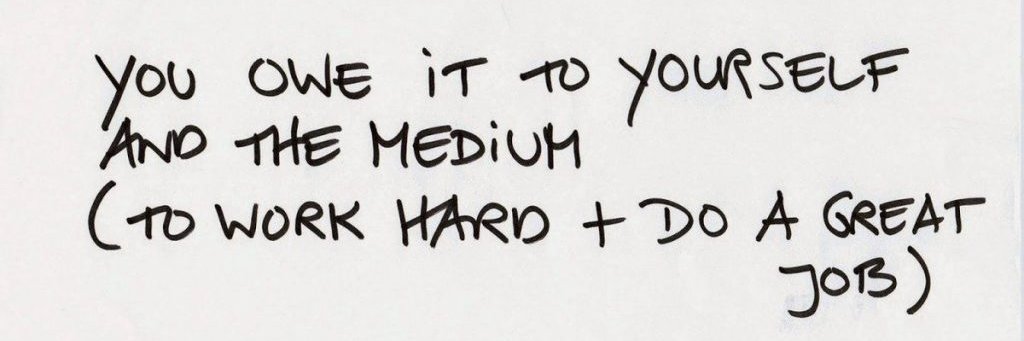 YOU OWE iT TO YOURSELF
AND THE MEDiUM
(TO WORK HARD + DO A GREAT
JOB)